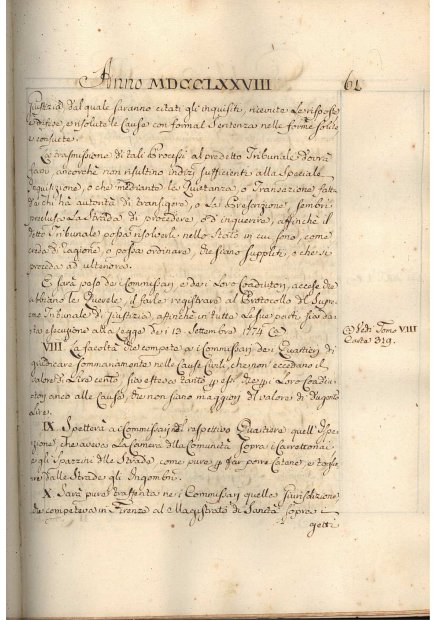 Anno MDCCLXXVIII
61
Giustizia dal quale saranno citati gli inquisiti, ricevute le risposte
e difese, e risolute le Cause con formal Sentenza nelle forme solite
e consuete.
La trasmissione di tali Processi al predetto Tribunale dovrà
farsi, ancorchè non risultino indizi sufficienti alla Speciale
Inquisizione, o che mediante la Quietanza, o Transazione fatta
da chi ha autorità di transigere, o la Prescrizione, sembri
preclusa la Strada di procedere, o d'inquirere, affinchè il
detto Tribunale possa risolverli nello Stato in cui sono, come
creda di ragione, o possa ordinare, che siano suppliti, o che si
proceda ad ulteriora.
E sarà peso dei Commissari e dei Loro Coadiutori, accese che
abbiano le Querele, il farle registrare al Protocollo del Supremo
Tribunale di Giustizia, affinchè in tutte le sue parti sia data
esecuzione alla Legge de' 13 Settembre 1774 (a)
(a) Vedi Tomo VIII
Carta 319.
VIII. La facoltà che compete a i Commissari dei Quartieri di
giudicare sommariamente nelle Cause Civili, che non eccedano il
valore di Lire cento, sia estesa tanto per essi che per i Loro Coadiutori
anco alle Cause, che non siano maggiori di valore di dugento
Lire.
IX. Spetterà a i Commissari del respettivo Quartiere quell'Ispezione,
che aveva la Camera della Comunità sopra i Carrettonai
e gli Spazzini delle Strade, come pure per far porre Catene, e togliere
dalle Strade gli Ingombri.
X. Sarà pure trasfusa ne i Commissari quella Giurisdizione
che competeva in Firenze al Magistrato di Sanità sopra i
getti